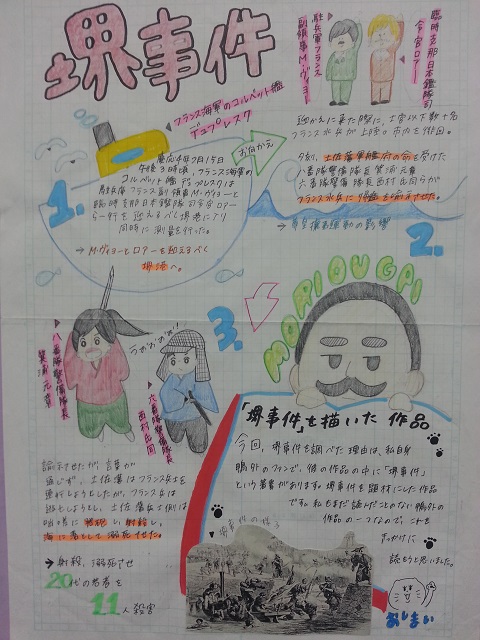 堺事件
フランス海軍のコルベット艦
デュプレスク
駐兵庫フランス
副領事M・ヴィヨー
臨時支那日本艦隊司
令官ロアー
お迎え
1.
慶応4年2月15日
午後3時頃、フランス海軍の
コルベット艦デュプレスクは
駐兵庫フランス副領事M・ヴィヨーと
臨時支那日本艦隊司令官ロアー
ら一行を迎えるべく堺港に入り
同時に測量を行った。
→M・ヴィヨーとロアーを迎えるべく
堺港へ。
2.
迎かえに来た際に、士官以下数十名
フランス水兵が上陸。市内を徘徊。
夕刻、土佐藩軍艦府の命を受けた
八番隊警備隊長箕浦元章
六番隊警備隊長西村氏同らが
フランス水兵に帰艦を諭示させた。
3.
八番隊警備隊長
箕浦元章
うおおおお!!
六番隊警備隊長
西村氏同
諭示させたが、言葉が
通じず、土佐藩はフランス兵士を
連行しようとしたが、フランス兵は
逃走しようとし、土佐藩兵士側は
咄嗟に発砲し、射殺し、
海に落として溺死させた。
→射殺、溺死させ
20代の若者を
11人殺害
MORI OUGAI
「堺事件」を描いた作品
今回、堺事件を調べた理由は、私自身
鴎外のファンで、彼の作品の中に「堺事件」
という著書があります。堺事件を題材にした作品
です。私もまだ読んだことのない鴎外の
作品の一つなので、これを
きっかけに
読もうと思いました。
堺事件の様子
おしまい